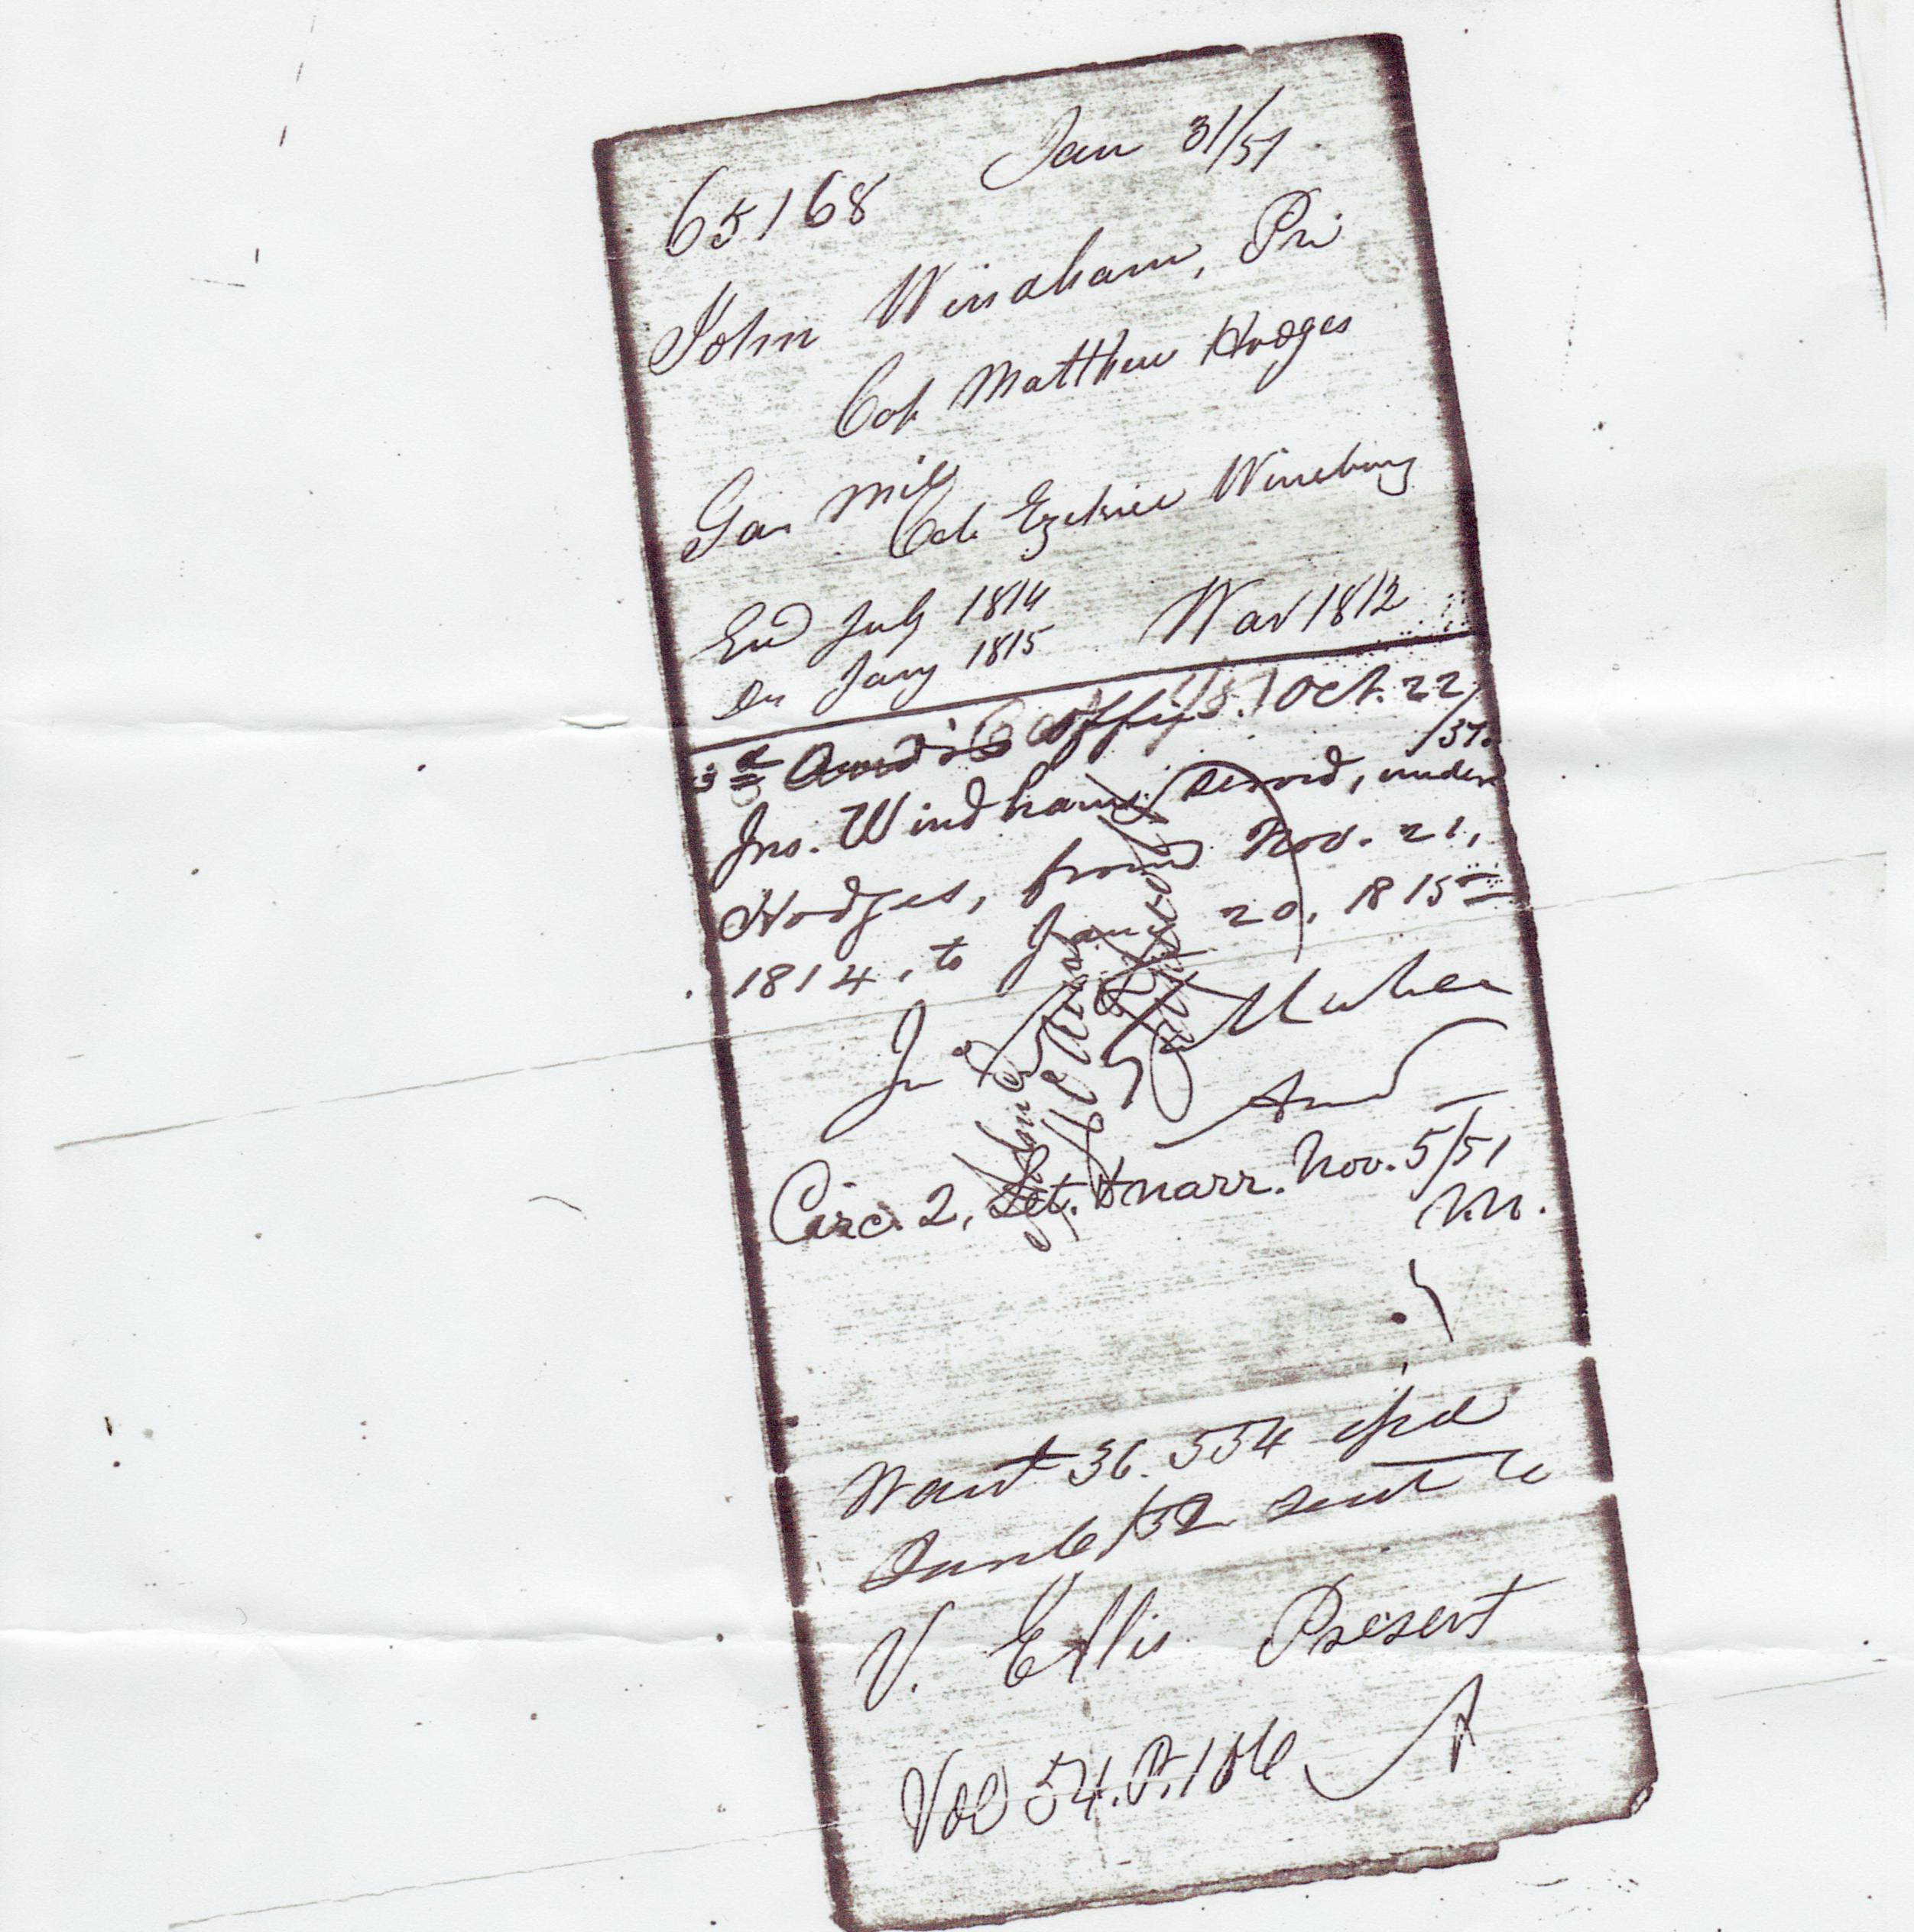 65168 Jan 31/51
John Windham, Pri
Cap Matthew Hodges
Ga. Mil
Col. Ezekiel Wimberly
End July 1814
Dis Jany 1815 War 1812
3d Aud's Office, Oct. 22/51.
Jno. Windham served, under
Hodges, from Nov. 21,
1814, to Jan. 20, 1815
Jno
Aud
Circ. 2, Let. & narr. Nov. 5/51
Want 36.554 ipd
June 6/52 sent to
V. Ellis Present
Vol 54. P. 106 A